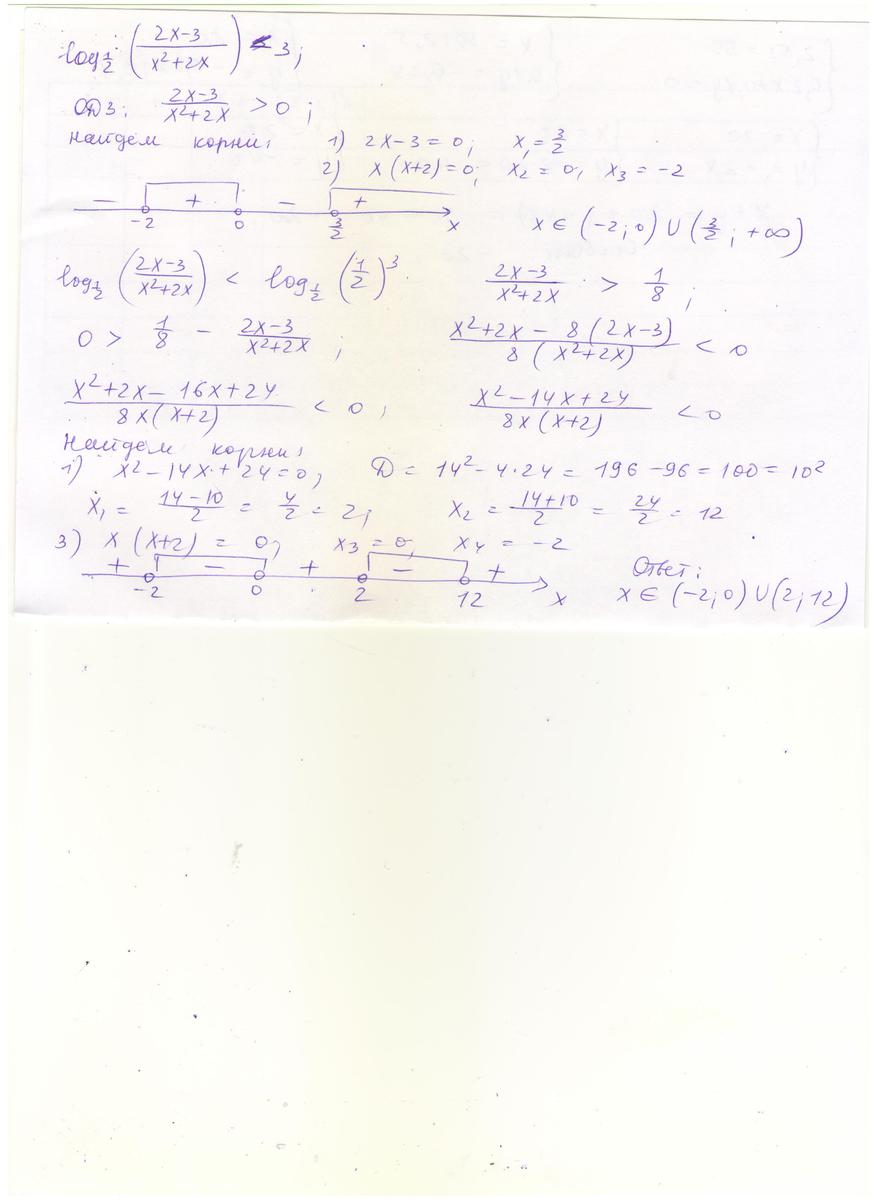 log½ ((2x-3)/(x²+2x)) < 3;
ОДЗ: (2x-3)/(x²+2x) > 0;
найдем корни: 1) 2x-3=0; x₁=3/2
2) x(x+2)=0; x₂=0, x₃=-2
− + − +
-2 0 3/2 x x∈(-2;0)∪(3/2;+∞)
log½ ((2x-3)/(x²+2x)) < log½ (1/2)³ (2x-3)/(x²+2x) > 1/8;
0 > 1/8 − (2x-3)/(x²+2x); (x²+2x-8(2x-3))/(8(x²+2x)) < 0
(x²+2x-16x+24)/(8x(x+2)) < 0; (x²-14x+24)/(8x(x+2)) < 0
Найдем корни:
1) x²-14x+24=0; D=14²-4·24=196-96=100=10²
x₁ = (14-10)/2 = 4/2 = 2; x₂ = (14+10)/2 = 24/2 = 12
3) x(x+2)=0; x₃=0, x₄=-2
+ − + − + Ответ:
-2 0 2 12 x x∈(-2;0)∪(2;12)